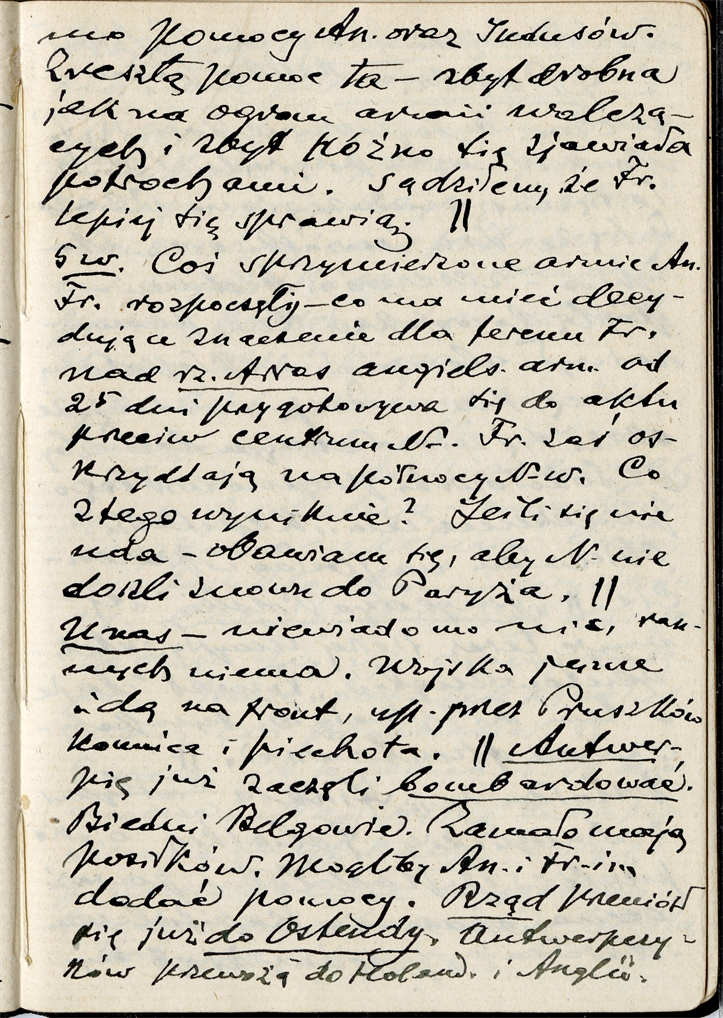 mo pomocy An. oraz Indusów.
Zresztą pomoc ta – zbyt drobna
jak na ogrom armii walczą-
cych i zbyt późno się zjawiała
potrochami. Sądziłem, że Fr.
lepiej się sprawią. ||
5 w. Coś sprzymierzone armie An.
Fr. rozpoczęły – co ma mieć decy-
dujące znaczenie dla terenu Fr.
nad rz. Arras angiels. arm. od
25 dni przygotowywa się do aktu
przeciw centrum N–. Fr. zaś os-
krzydlają na północy N-w. Co
z tego wyniknie? Jeśli się nie
uda – obawiam się, aby N– nie
doszli znowu do Paryża. ||
U nas – niewiadomo nic, ran-
nych niema. Wojska jeszcze
idą na front, np. przez Pruszków
konnica i piechota. || Antwer-
pię już zaczęli bombardować.
Biedni Belgowie. Zamało mają
posiłków. Mogliby An. i Fr-im
dodać pomocy. Rząd przeniósł
się już do Ostendy. Antwerpczy-
ków przewożą do Holand. i Anglii.